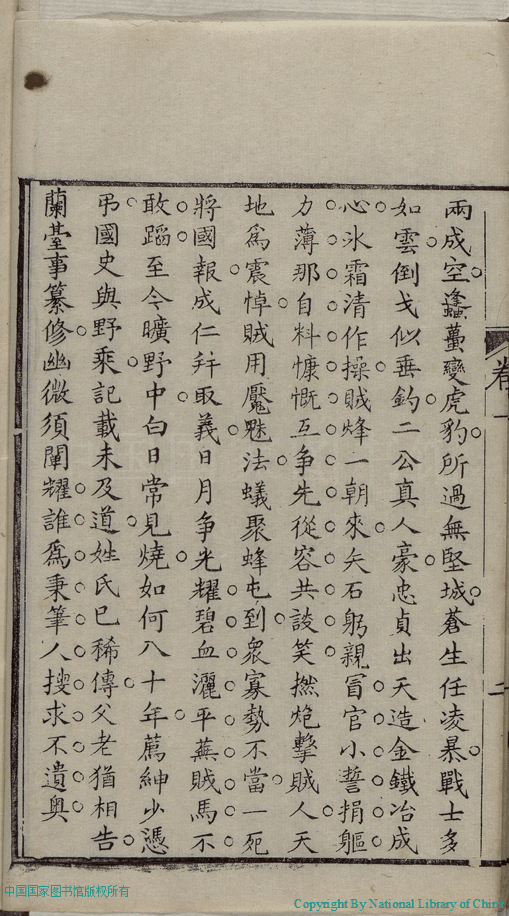 卷一
二
兩成空蠭蠆變虎豹所過無堅城蒼生任凌暴戰士多
如雲倒戈似垂釣二公真人豪忠貞出天造金鐵冶成
心氷霜清作操賊烽一朝來矢石躬親冒官小誓捐軀
力薄那自料慷慨互争先從容共談笑撚炮擊賊人天
地爲震悼賊用魘魅法蟻聚蜂屯到衆寡勢不當一死
將國報成仁幷取義日月争光耀碧血灑平蕪賊馬不
敢蹈至今曠野中白日常見燒如何八十年薦紳少憑
弔國史與野乘記載未及道姓氏已稀傳父老猶相告
蘭臺事纂修幽微須闡耀誰爲秉筆人搜求不遺奥
中国国家图书馆版权所有
Copyright By National Library of China